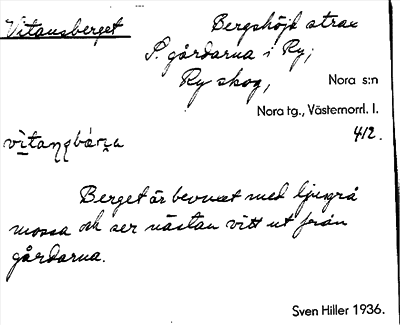 Vitansberget
Bergshöjd strax
S. gårdarna i Ry;
Ry skog,
Nora s:n
Nora tg., Västernorrl. l.
412.
Berget är bevuxet med ljusgrå
mossa och ser nästan vitt ut från
gårdarna.
Sven Hiller 1936.